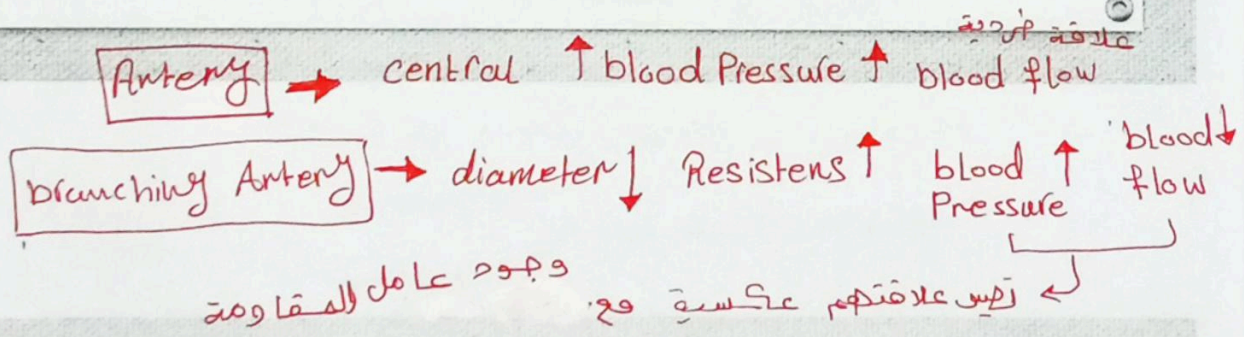 علاقة طردية
Artery → central ↑ blood Pressure ↑ blood flow
branching Artery → diameter ↓ Resistens ↑ blood Pressure ↑ blood flow ↓
تصير علاقتهم عكسية مع وجود عامل المقاومة